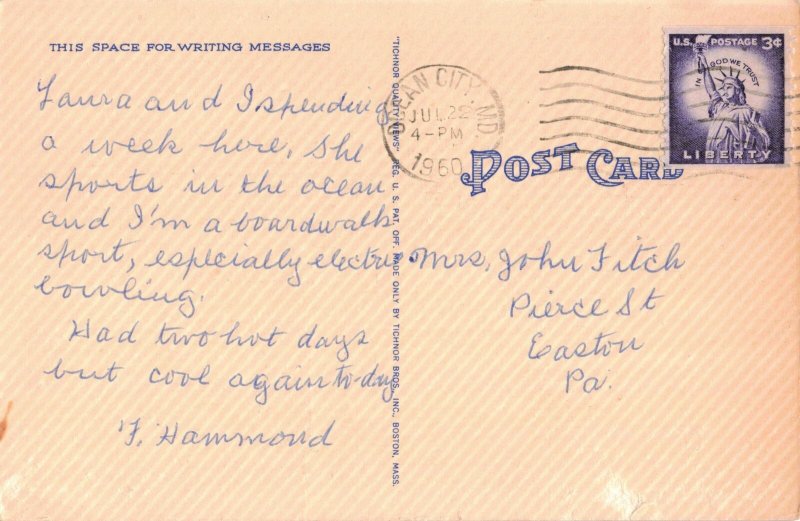 THIS SPACE FOR WRITING MESSAGES
Laura and I spending
a week here. She
sports in the ocean
and I'm a boardwalk
sport, especially electric
bowling.
Had two hot days
but cool again to-day
F. Hammond
"TICHNOR QUALITY VIEWS" REG. U. S. PAT. OFF. MADE ONLY BY TICHNOR BROS., INC., BOSTON, MASS.
OCEAN CITY, MD.
JUL 22
4-PM
1960
U.S. POSTAGE 3¢
IN GOD WE TRUST
LIBERTY
POST CARD
Mrs, John Fitch
Pierce St
Easton
Pa.